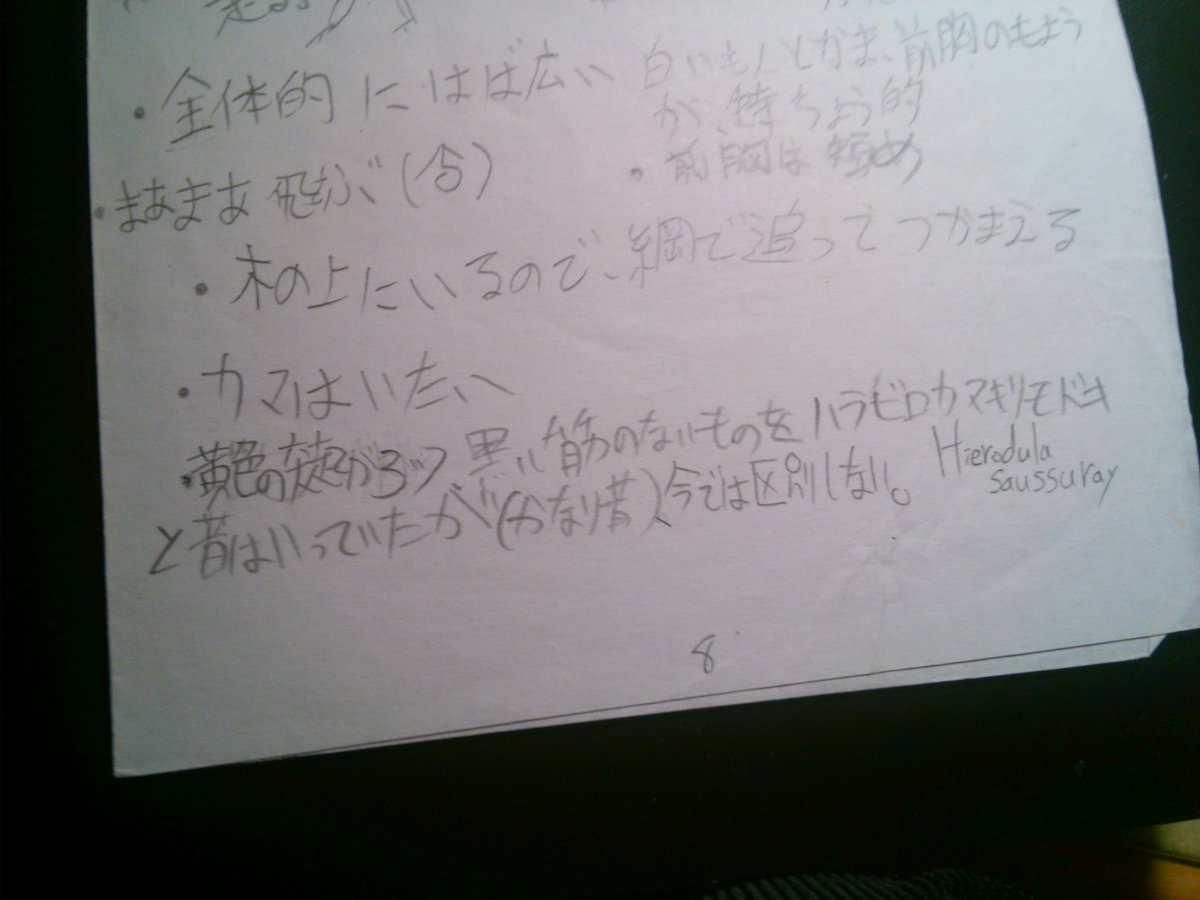 ・全体的にはば広い 白いもんとかま、前胸のもよう
が、特ちょう的
・まあまあ飛ぶ(合) ・前胸は短め
・木の上にいるので、網で追ってつかまえる
・カマはいたい
・黄色の突起が3つ 黒い筋のないものをハラビロカマキリモドキ
と昔はいっていたが(かなり昔)、今では区別しない。 Hierodula
saussuray
8